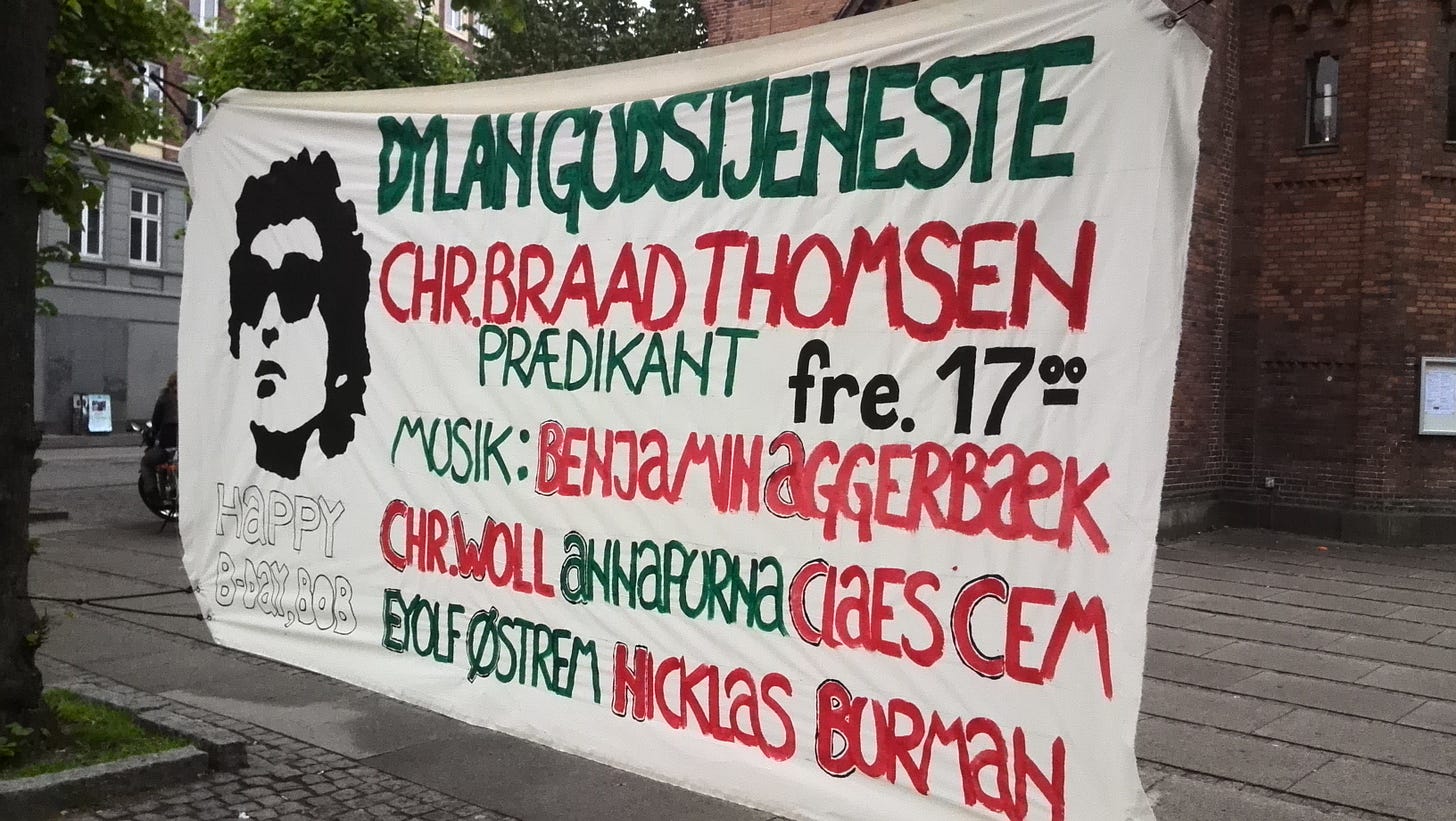 DYLANGUDSTJENESTE
CHR. BRAAD THOMSEN
PRÆDIKANT fre. 17 00
MUSIK: BENJaMIN aGGERBaeK
CHR. WOLL aNNaPURNa CLaES CEM
EYOLF ØSTREM NICKLaS BURMaN
HaPPY
B-DaY, BOB